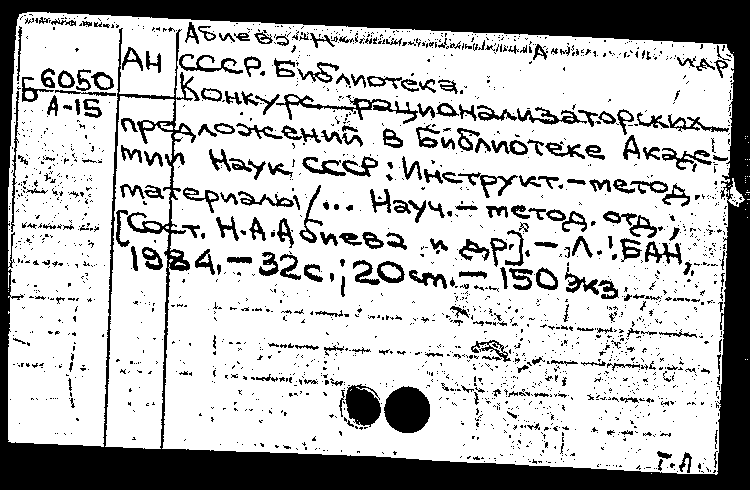 Абиева, Н
А
АН СССР. Библиотека.
Б 6050 Конкурс рационализаторских
А-15
предложений в Библиотеке Акаде-
мии Наук СССР: Инструкт.-метод.
материалы /... Науч.-метод. отд.;
[Сост. Н.А.Абиева и др.].- Л.: БАН,
1984.- 32с.; 20см.- 150экз
Т.Л.